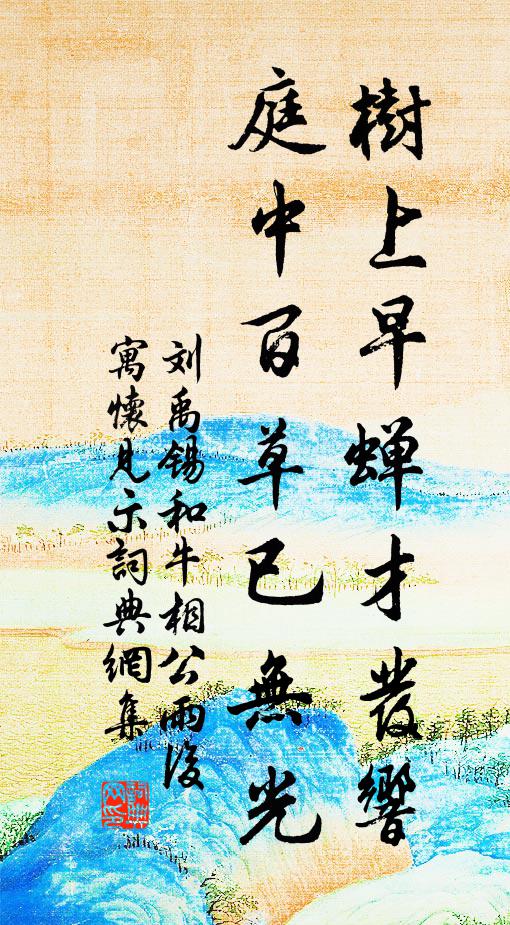 樹上早蟬才發響
庭中百草已無光
刘禹錫和牛相公雨後
寓懷見示詞典網集